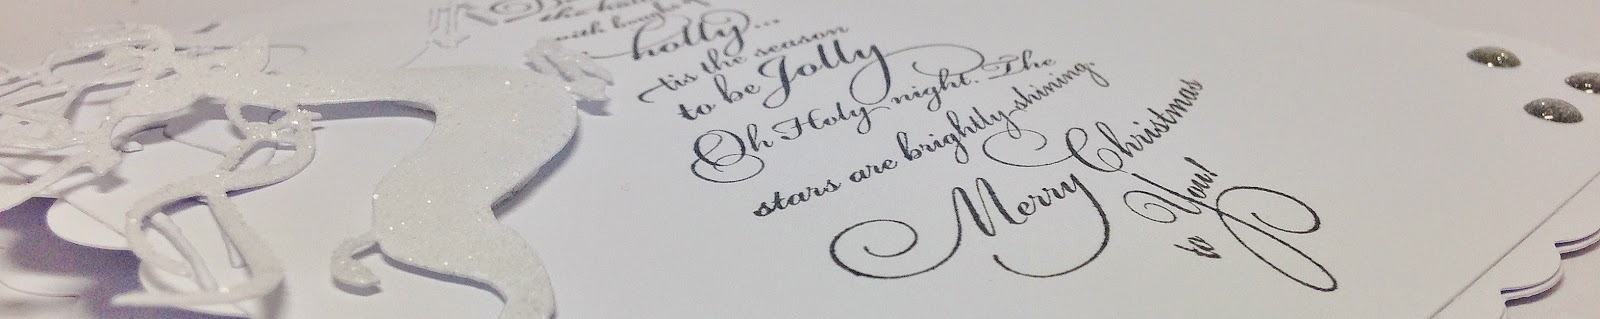 the
with boughs of
holly...
'tis the season
to be Jolly
Oh Holy night. The
stars are brightly shining.
Merry Christmas
to You!